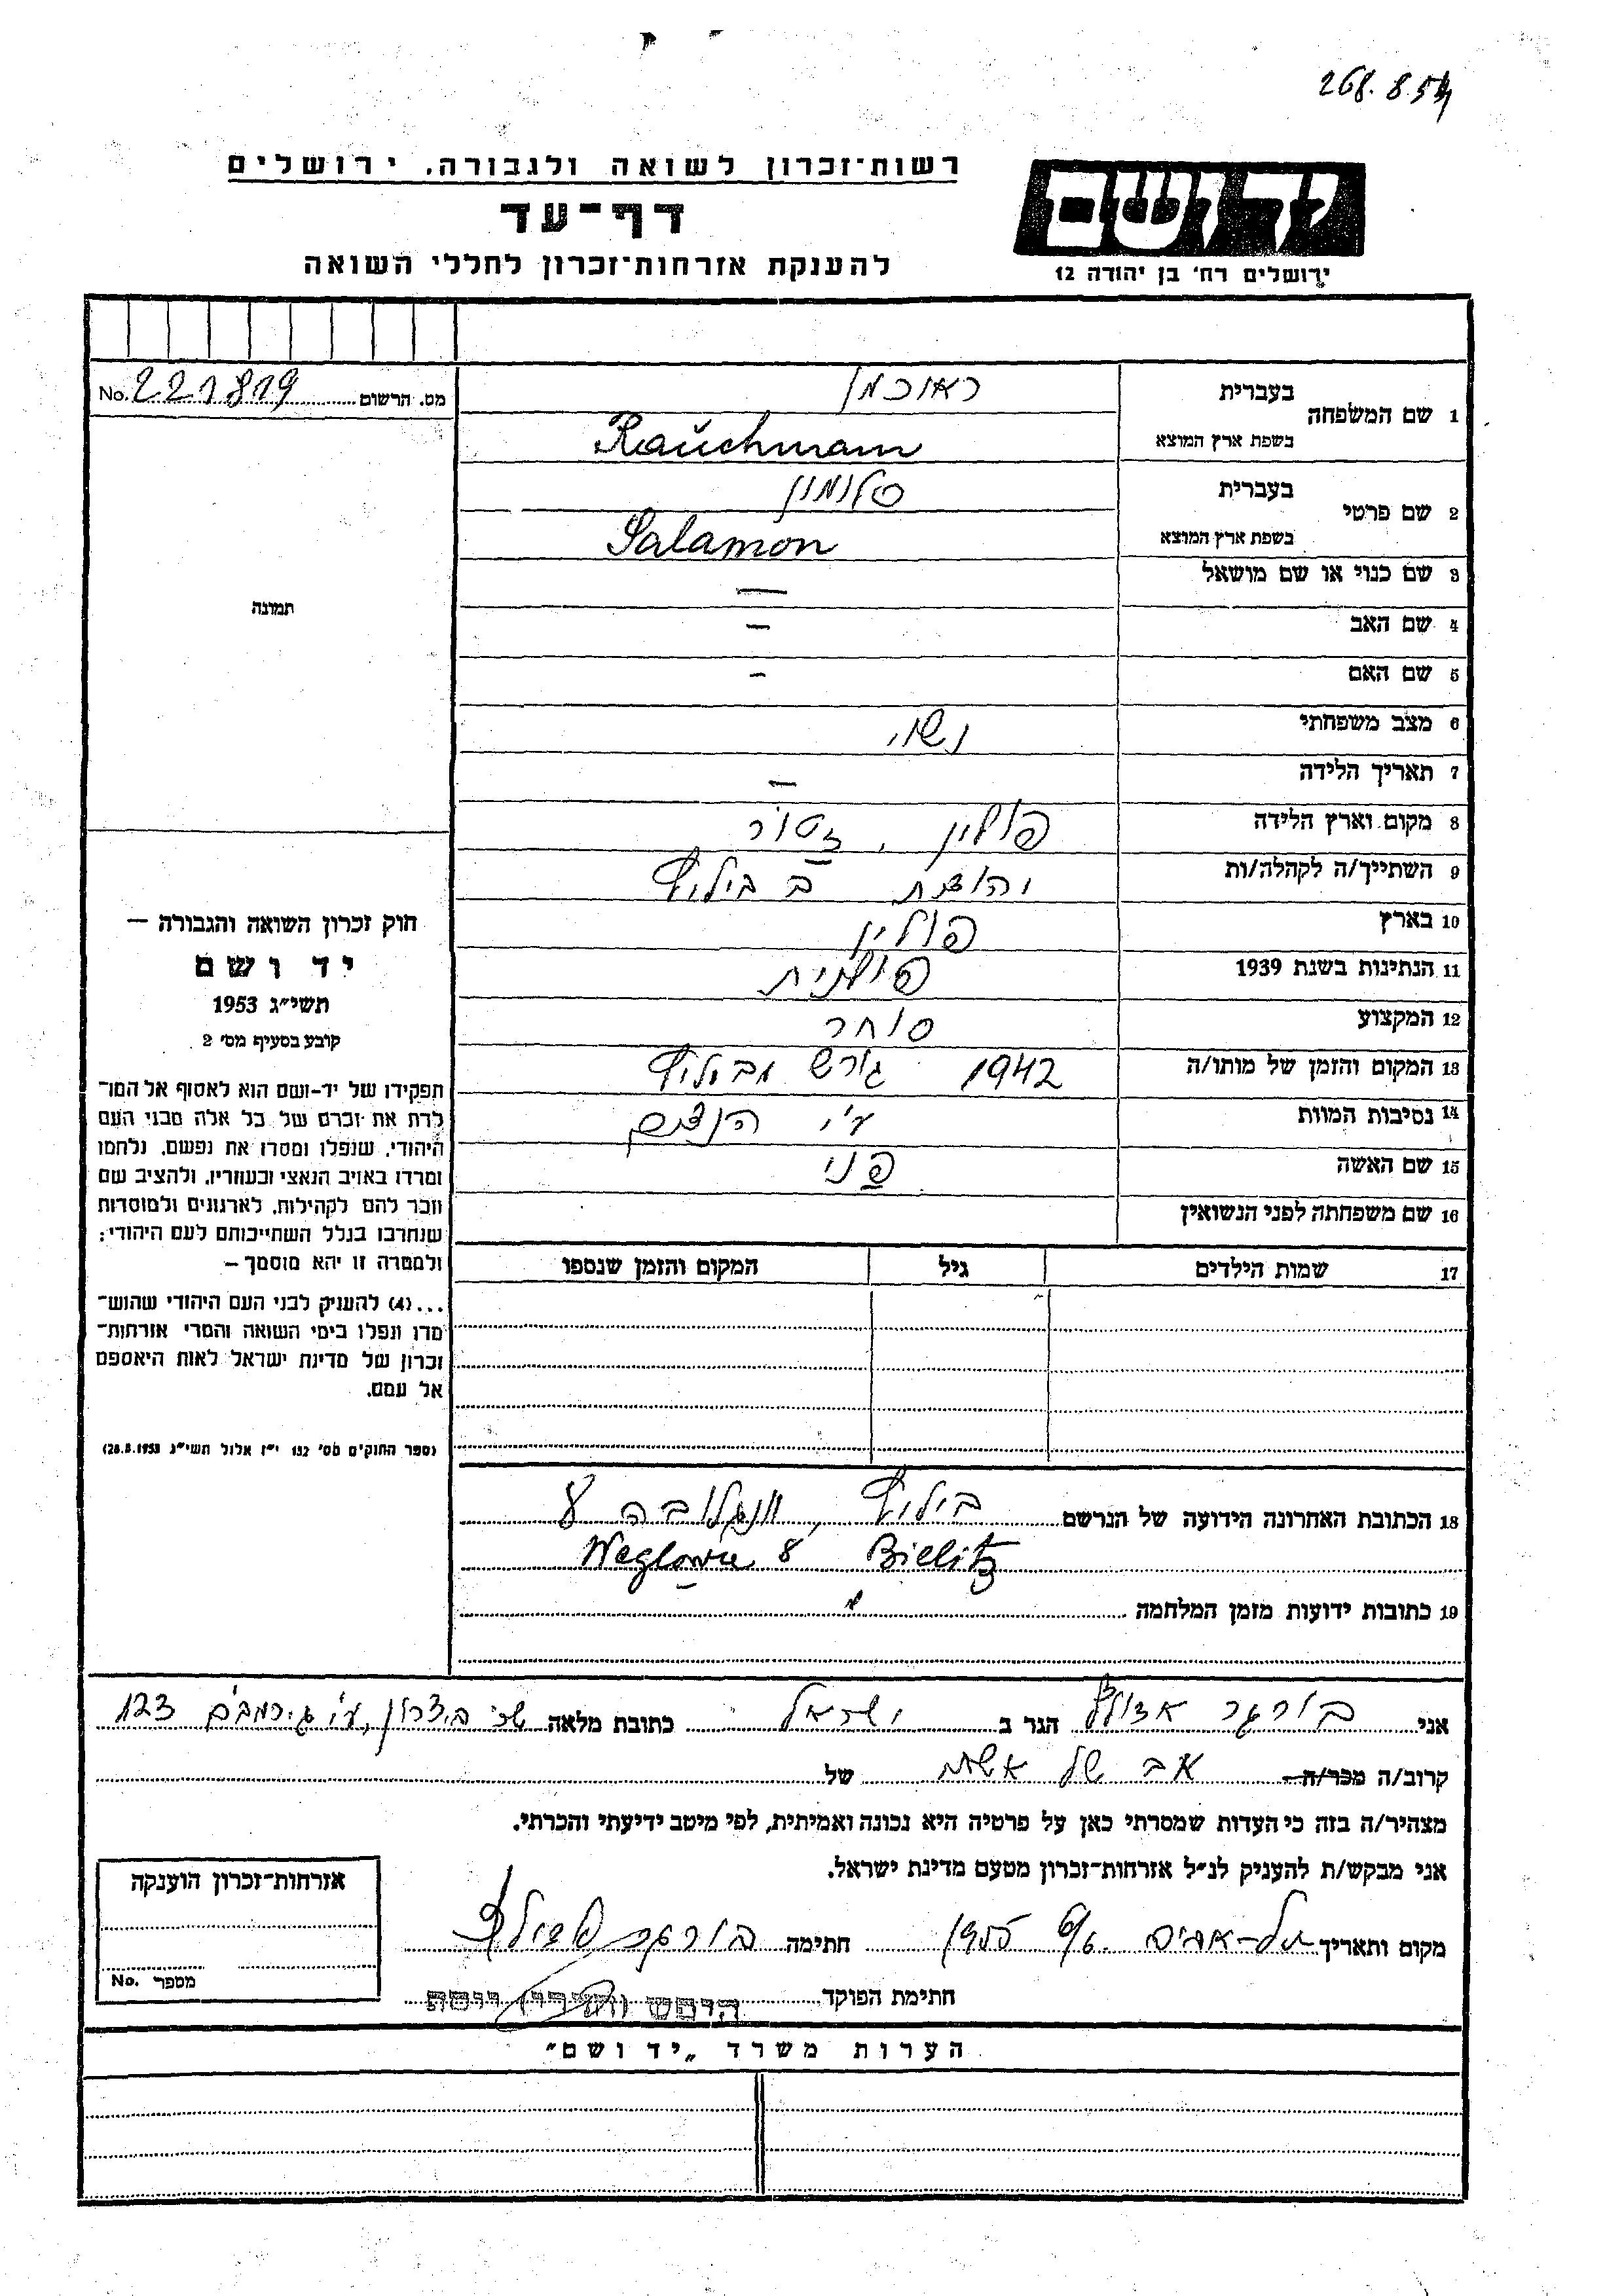 268.8.54
רשות־זכרון לשואה ולגבורה. ירושלים
יד ושם
דף־עד
להענקת אזרחות־זכרון לחללי השואה
ירושלים רח' בן יהודה 12
מס. הרשום 221819 No.
1 שם המשפחה
בעברית ראוכמן
בשפת ארץ המוצא Rauchmam
2 שם פרטי
בעברית סלומון
בשפת ארץ המוצא Salamon
3 שם כנוי או שם מושאל —
4 שם האב —
5 שם האם -
6 מצב משפחתי נשוי
7 תאריך הלידה —
8 מקום וארץ הלידה פולין,
9 השתייך/ה לקהלה/ות ב ביליץ
10 בארץ פולין
11 הנתינות בשנת 1939 פולנית
12 המקצוע סוחר
13 המקום והזמן של מותו/ה 1942 גורש מביליץ
14 נסיבות המוות ע"י הנצים
15 שם האשה פני
16 שם משפחתה לפני הנשואין
17 שמות הילדים גיל המקום והזמן שנספו
תמונה
חוק זכרון השואה והגבורה —
יד ושם
תשי"ג 1953
קובע בסעיף מס' 2
תפקידו של יד-ושם הוא לאסוף אל המו־
לדת את זכרם של כל אלה מבני העם
היהודי, שנפלו ומסרו את נפשם, נלחמו
ומרדו באויב הנאצי ובעוזריו, ולהציב שם
וזכר להם לקהילות, לארגונים ולמוסדות
שנחרבו בגלל השתייכותם לעם היהודי;
ולמטרה זו יהא מוסמך —
...(4) להעניק לבני העם היהודי שהוש־
מדו ונפלו בימי השואה והמרי אזרחות־
זכרון של מדינת ישראל לאות היאספם
אל עמם.
(ספר החוקים מס' 132 י"ז אלול תשי"ג 28.8.1953)
18 הכתובת האחרונה הידועה של הנרשם ביליץ, 8
Weglowa 8 Bielitz
19 כתובות ידועות מזמן המלחמה
אני בורגר אדולף הגר ב ישראל כתובת מלאה שכ' ביצרון, 123
קרוב/ה מכר/ה אב של אשתו של
מצהיר/ה בזה כי העדות שמסרתי כאן על פרטיה היא נכונה ואמיתית, לפי מיטב ידיעתי והכרתי.
אני מבקש/ת להעניק לנ"ל אזרחות־זכרון מטעם מדינת ישראל.
מקום ותאריך תל-אביב 6/6 1955 חתימה בורגר אדולף
חתימת הפוקד
אזרחות־זכרון הוענקה
מספר No.
הערות משרד „יד ושם"